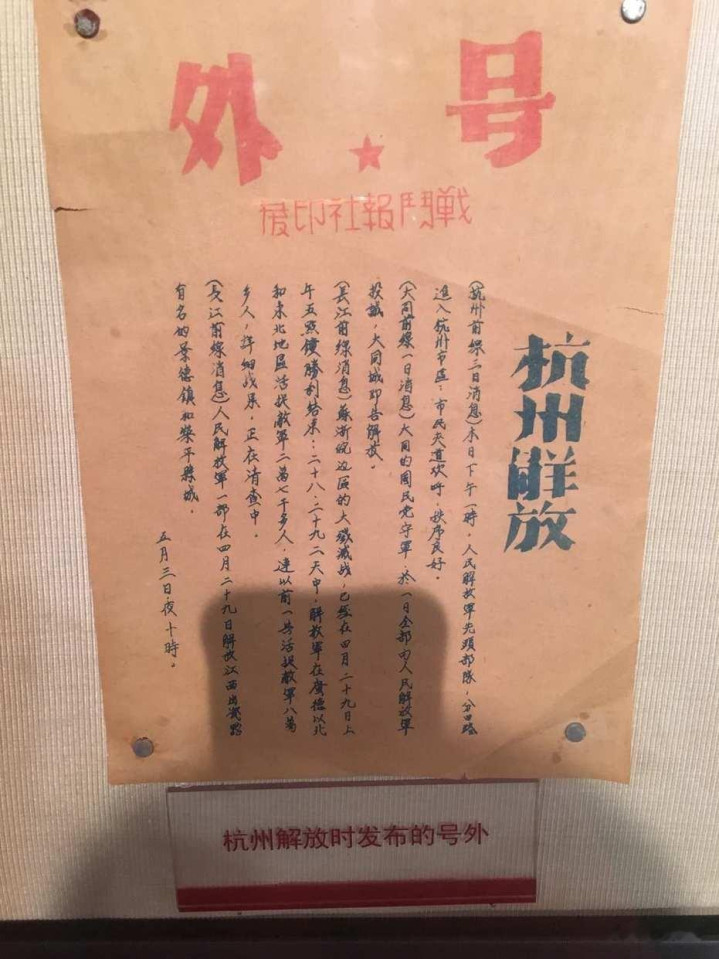 号外
戰鬥報社印發
杭州解放
(杭州前線三日消息)本日下午一時,人民解放軍先頭部隊,分四路
進入杭州市區:市民夾道欢呼,秩序良好。
(大同前線一日消息)大同的國民党守軍,於一日全部向人民解放軍
投誠,大同城即告解放。
(長江前線消息)蘇浙皖边區的大殲滅战,已經在四月二十九日上
午五點鐘勝利結束:二十八、二十九二天中,解放軍在廣德以北
和東北地區活捉敵軍二萬七千多人,連以前一共活捉敵軍八萬
多人,詳細战果,正在清查中。
(長江前線消息)人民解放軍一部在四月二十九日解放江西出瓷器
有名的景德鎮和樂平縣城。
五月三日夜十時。
杭州解放时发布的号外